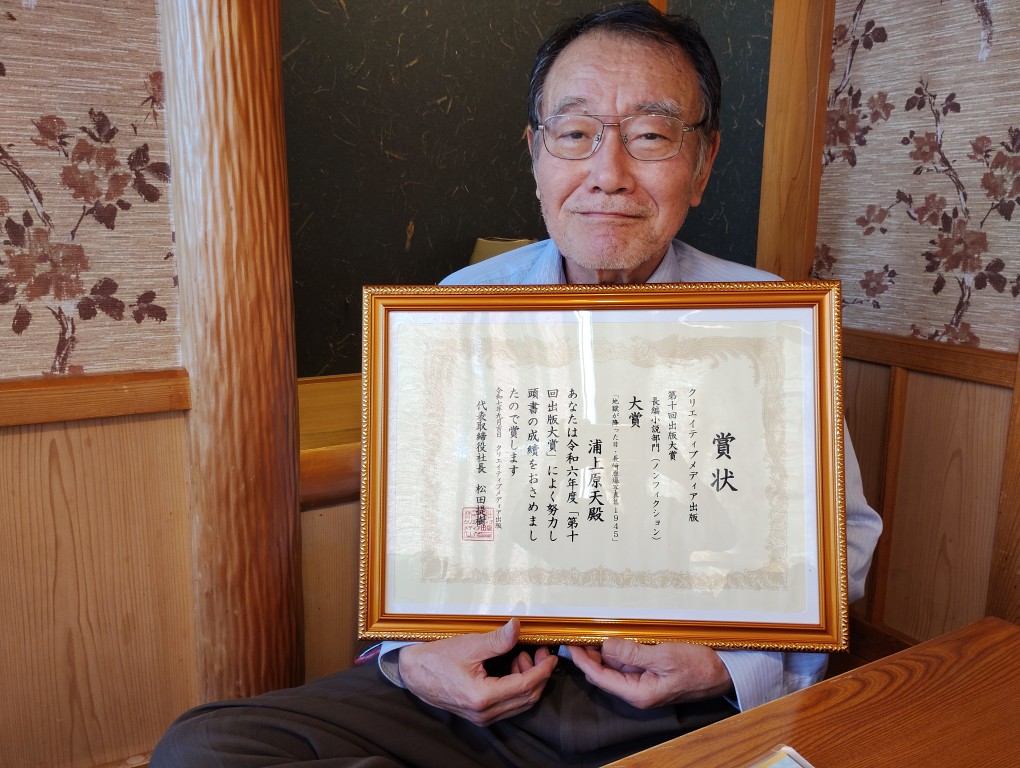 賞状
クリエイティブメディア出版
第十回出版大賞
長編小説部門（ノンフィクション）
大賞
「地獄が降った日・長崎 1945」
浦上原天殿
あなたは令和六年度「第十
回出版大賞」によく努力し
頭書の成績をおさめまし
たので賞します
令和七年九月吉日 クリエイティブメディア出版
代表取締役社長 松田提樹